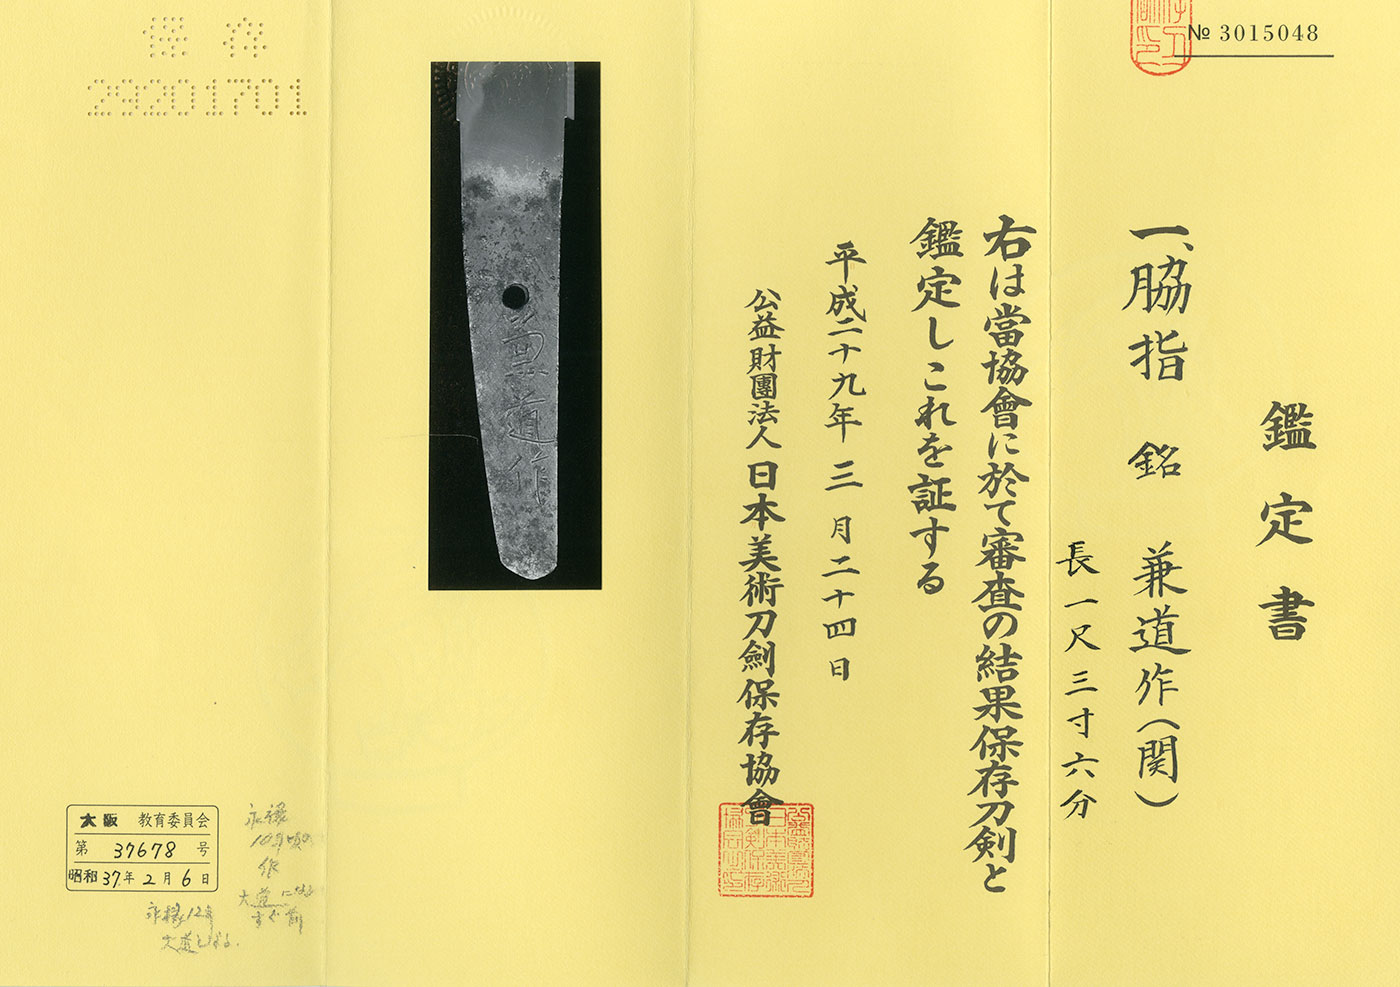 № 3015048
鑑定書
一、脇指 銘 兼道作(関)
長一尺三寸六分
右は當協會に於て審査の結果保存刀剣と
鑑定しこれを証する
平成二十九年三月二十四日
公益財團法人日本美術刀劍保存協會
兼道作
保存
29201701
大阪 教育委員会
第 37678 号
昭和37年2月6日
永禄
10年頃の
作
大道になる
すぐ前
永禄12年
大道となる.